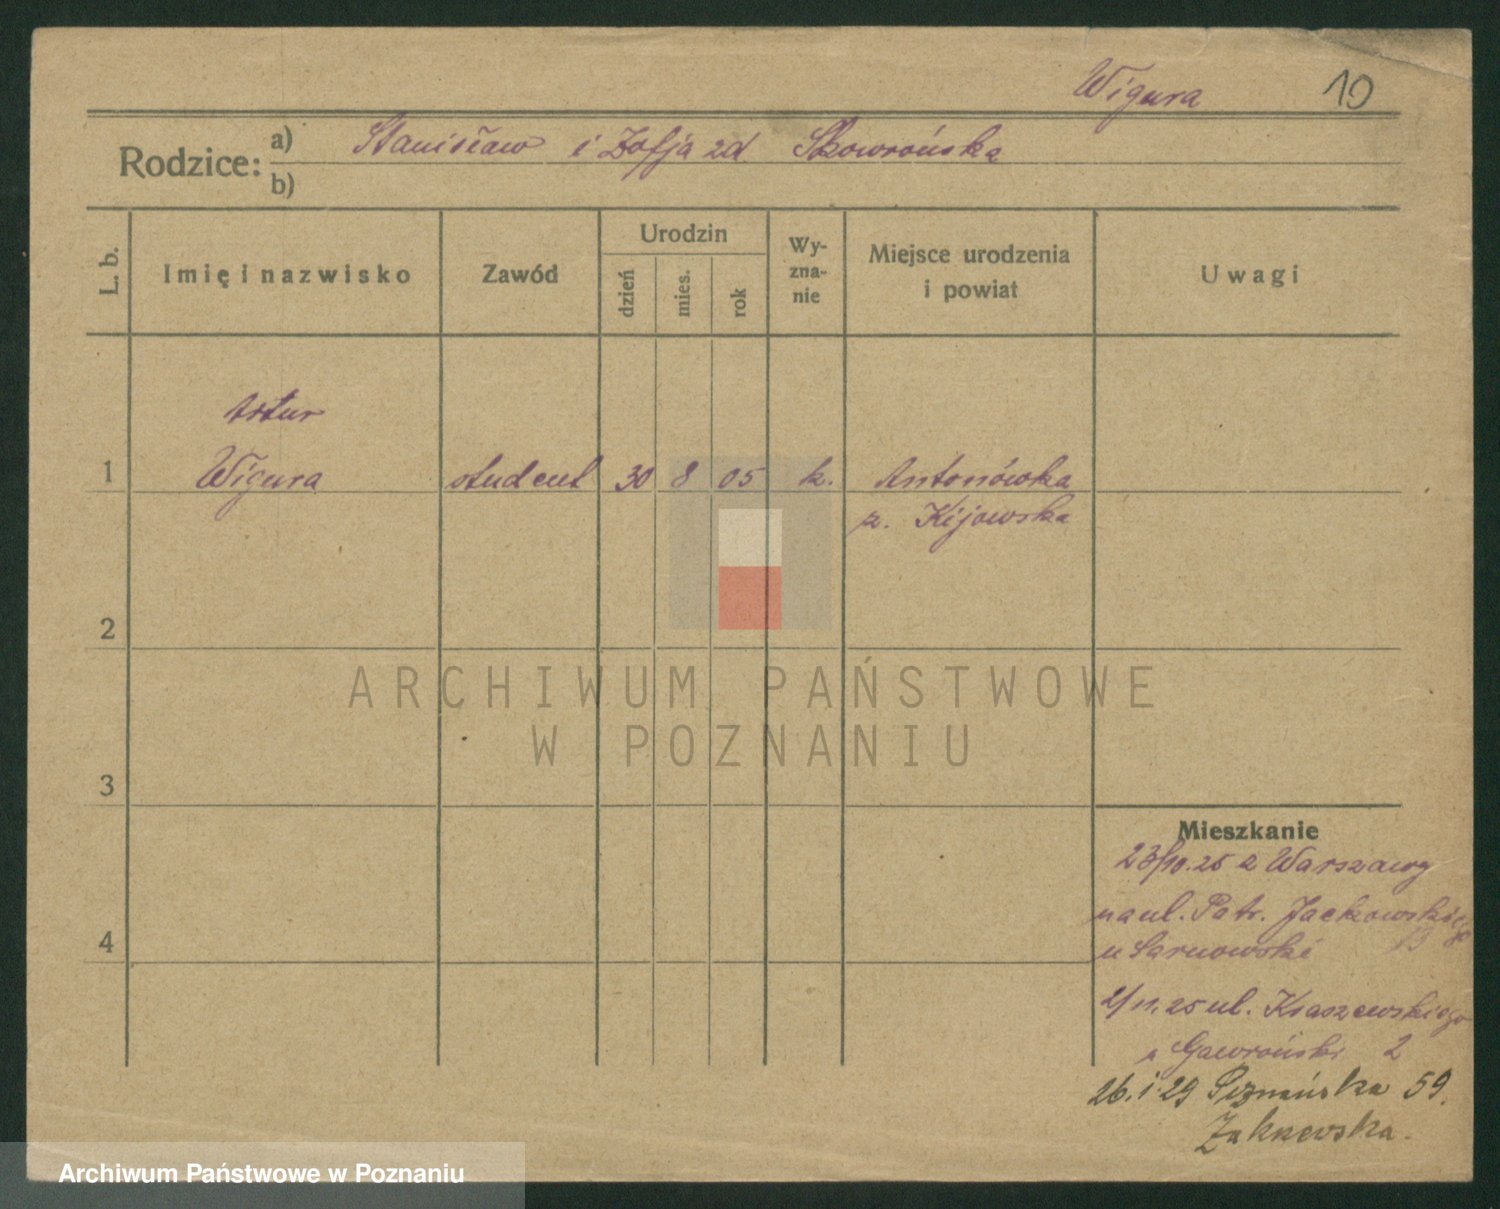 Wigura 10
Rodzice: a) Stanisław i Zofja zd. Skowrońska
b)
L. b. Imię i nazwisko Zawód Urodzin dzień mies. rok Wyznanie Miejsce urodzenia i powiat Uwagi
Artur
1 Wigura student 30 8 05 k. Antonówka
z. Kijowska
2
ARCHIWUM PAŃSTWOWE
W POZNANIU
3
Mieszkanie
23/10.25 z Warszawy
na ul. Patr. Jackowskiego
4 u Sarnowski
2/11.25 ul. Kraszewskiego
Gawroński 2
26.1.29 Poznańska 59.
Archiwum Państwowe w Poznaniu